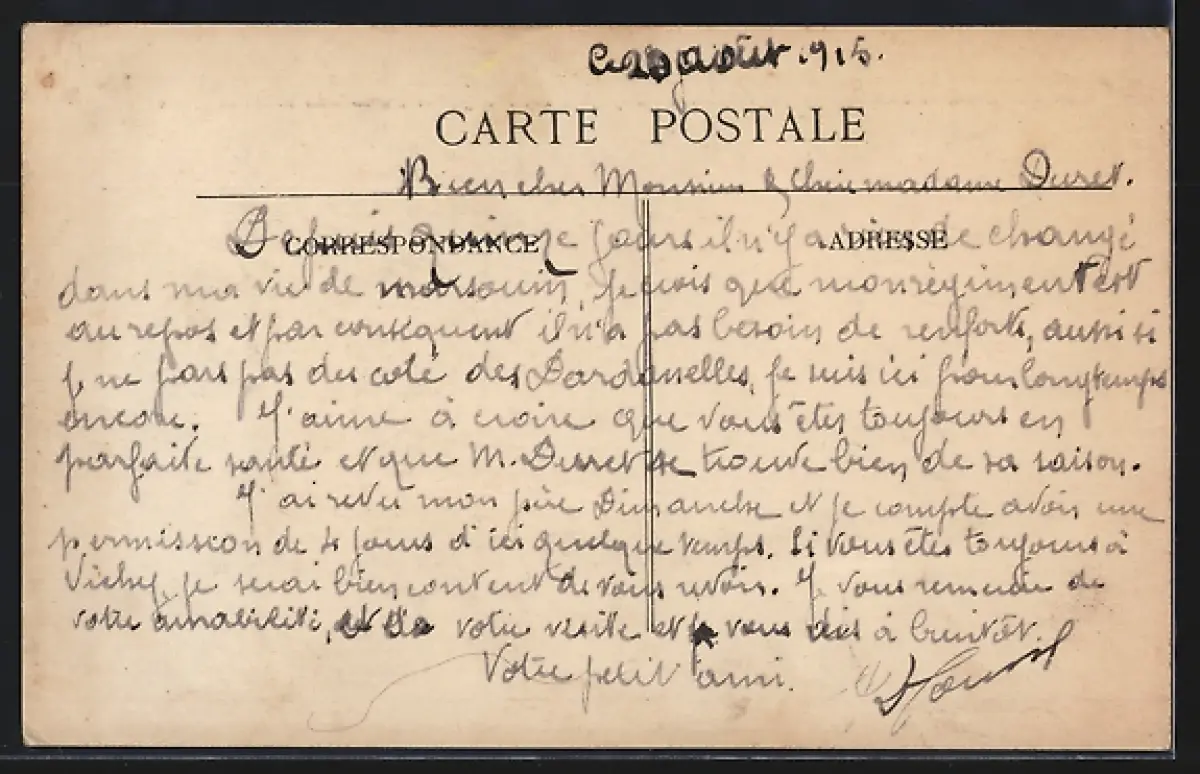 Ce 20 août 1915.
CARTE POSTALE
Bien cher Monsieur & chère madame Duret.
Depuis quinze jours il n'y a rien de changé
CORRESPONDANCE ADRESSE
dans ma vie de marsouin, je crois que mon régiment est
au repos et par conséquent il n'a pas besoin de renforts, aussi si
je ne pars pas du coté des Dardanelles, je suis ici pour longtemps
encore. J'aime à croire que vous êtes toujours en
parfaite santé et que M. Duret se trouve bien de sa saison.
J'ai revu mon père Dimanche et je compte avoir une
permission de 4 jours d'ici quelque temps. Si vous êtes toujours à
Vichy, je serai bien content de vous revoir. Je vous remercie de
votre amabilité, et de votre visite et je vous dis à bientôt.
Votre petit ami.